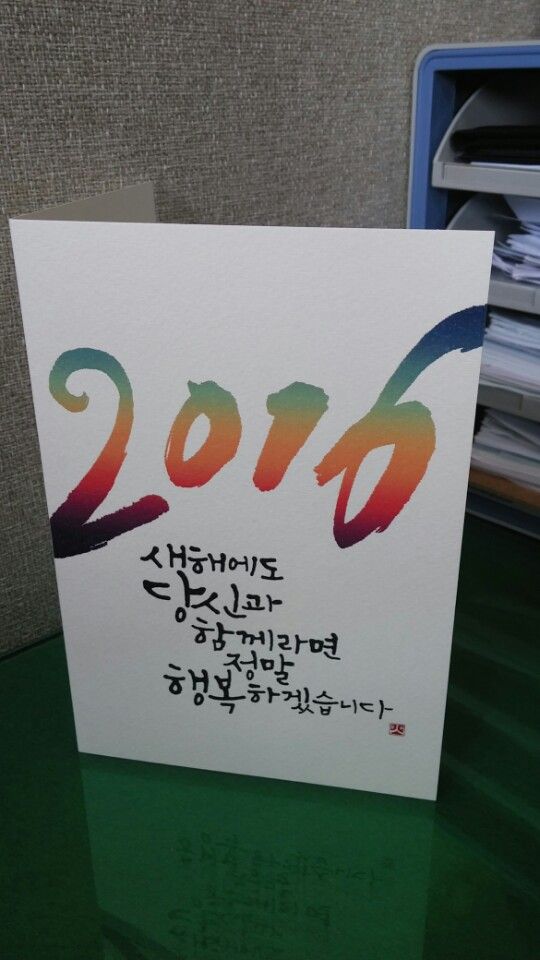 2016
새해에도
당신과
함께라면
정말
행복하겠습니다